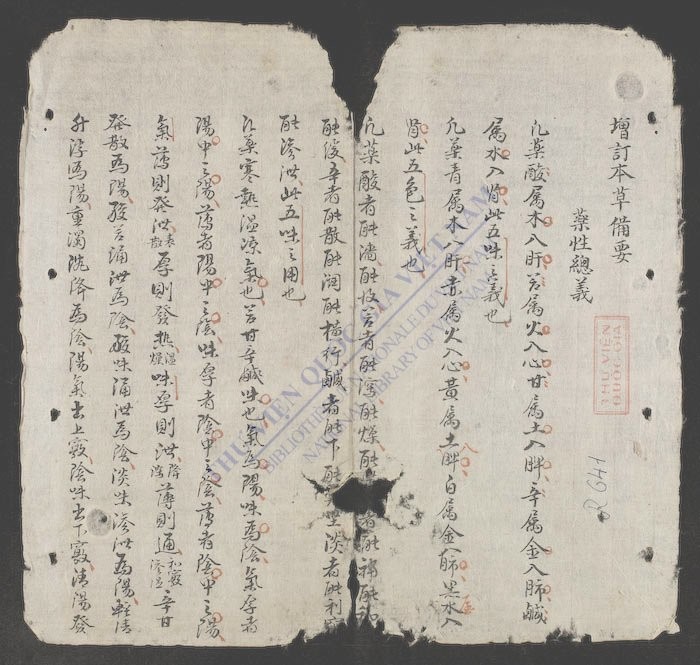 增訂本草備要
藥性總義
凢藥酸属木入肝苦属火入心甘属土入脾辛属金入肺鹹
属水入腎此五味之義也
凢藥青属木入肝赤属火入心黄属土入脾白属金入肺黑水入
腎此五色之義也
凢藥酸者能澁能收苦者能瀉能燥能者能補能和
能緩辛者能散能潤能橫行鹹者能下能堅淡者能利
能滲泄此五味之用也
凢藥寒熱温凉氣也苦甘辛鹹味也氣為陽味為陰氣厚者
陽中之陽薄者陽中之陰味厚者陰中之陰薄者陰中之陽
氣薄則發泄表散厚則發热温燥味厚則泄降瀉薄則通利竅滲湿辛甘
發散為陽酸苦涌泄為陰酸味涌泄為陰淡味滲泄為陽輕清
升浮為陽重濁沉降為陰陽氣出上竅陰味出下竅清陽發
THƯ VIỆN
QUỐC GIA
R 641
THƯ VIỆN QUỐC GIA VIỆT NAM
BIBLIOTHÈQUE NATIONALE DU VIETNAM
NATIONAL LIBRARY OF VIETNAM